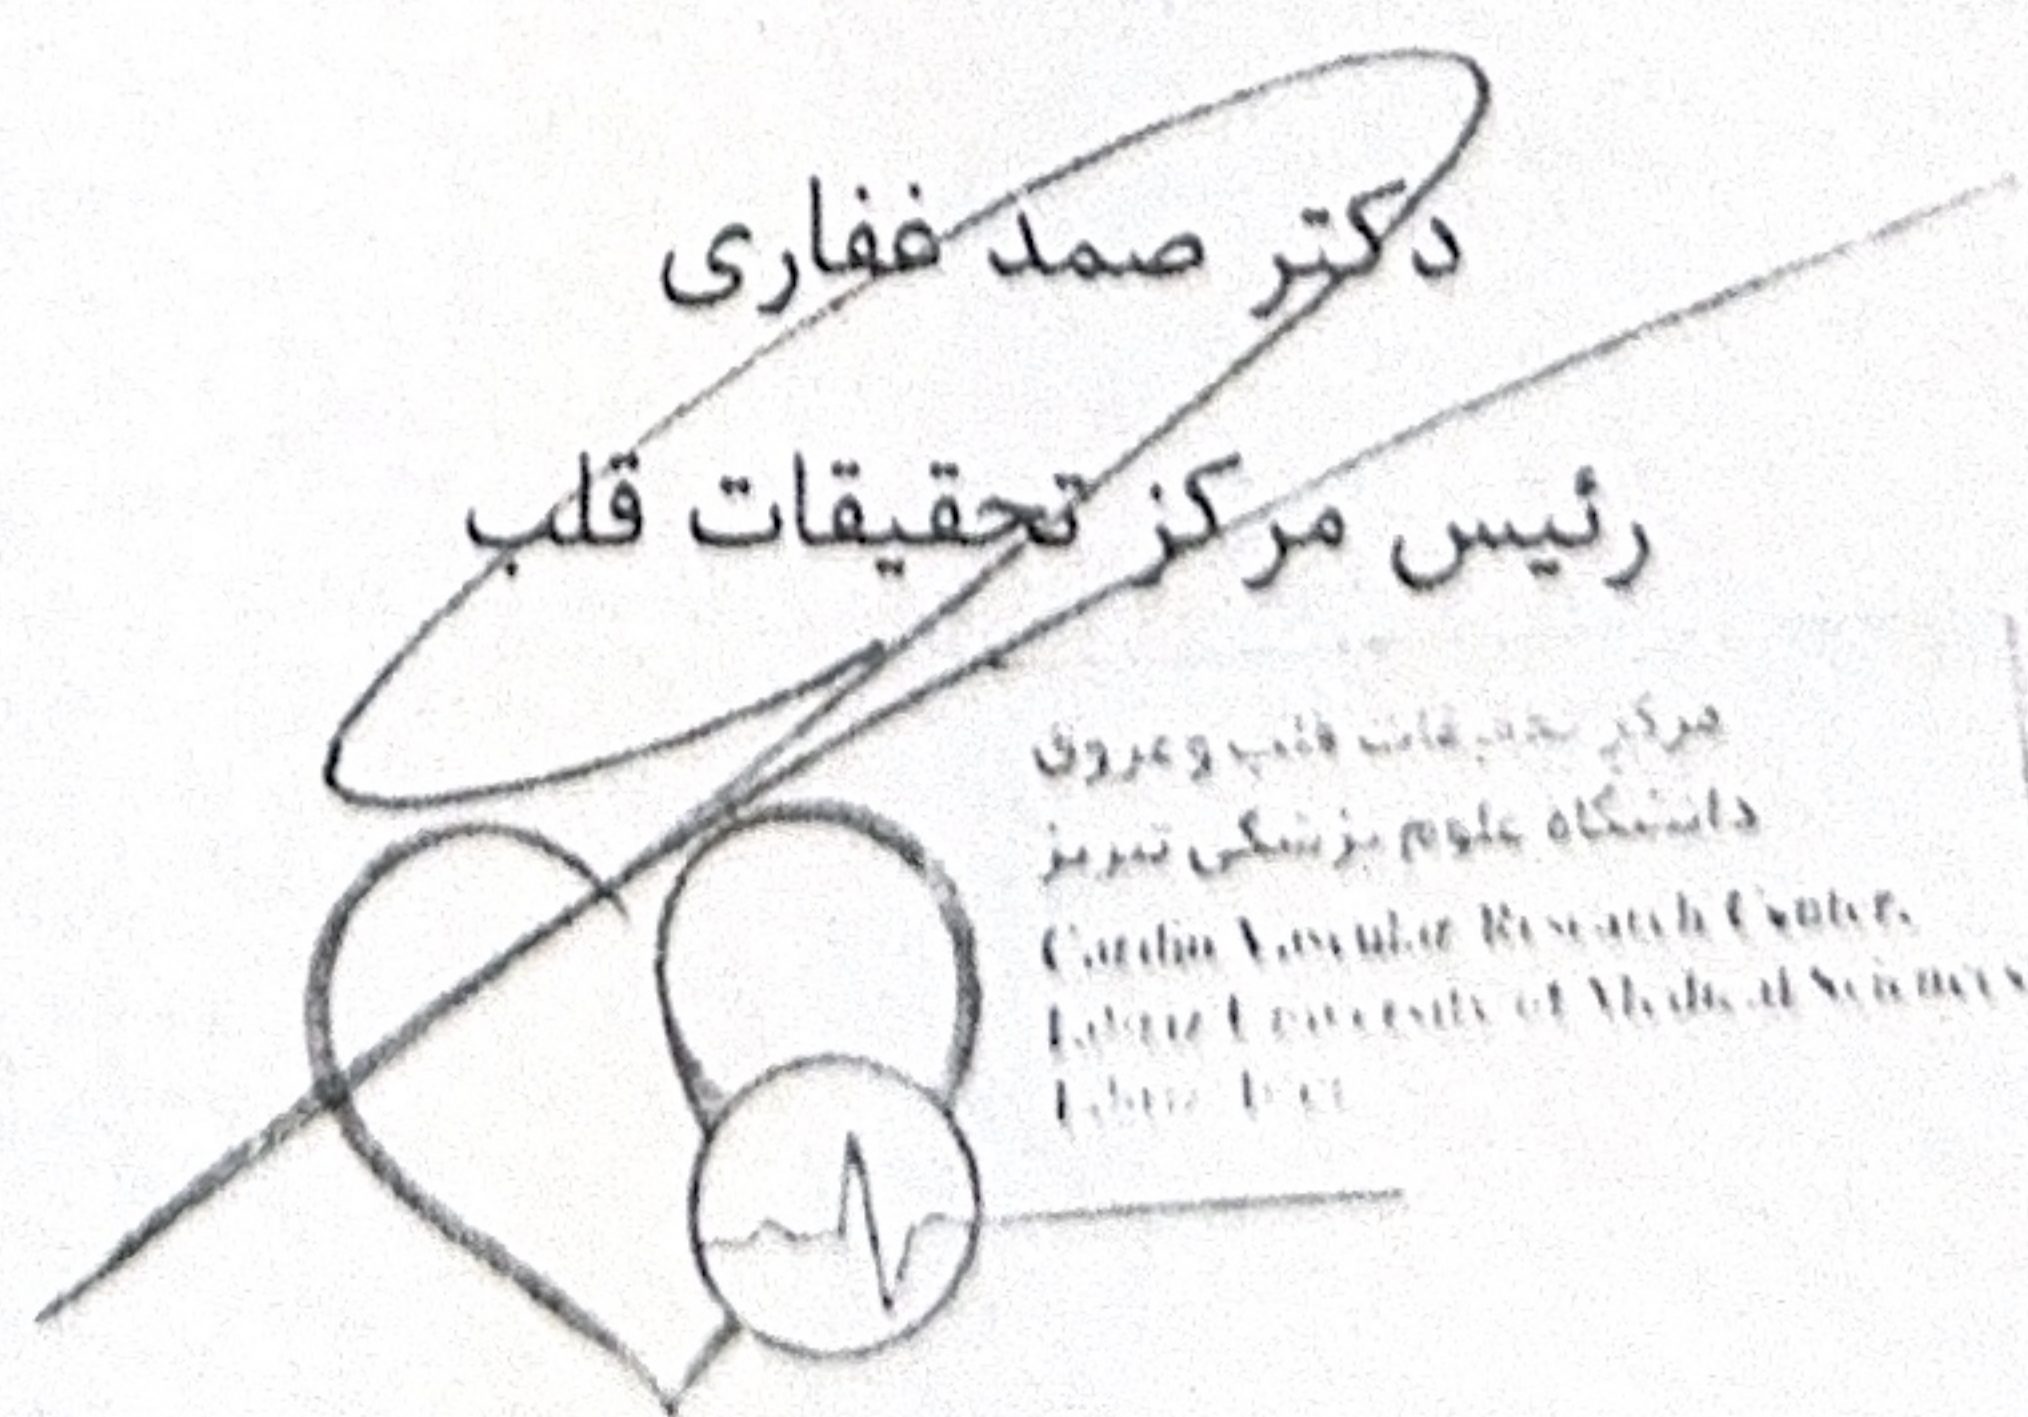 دکتر صمد غفاری
رئیس مرکز تحقیقات قلب
مرکز تحقیقات قلب و عروق
دانشگاه علوم پزشکی تبریز
Cardio Vascular Research Center,
Tabriz University of Medical Sciences
Tabriz Iran